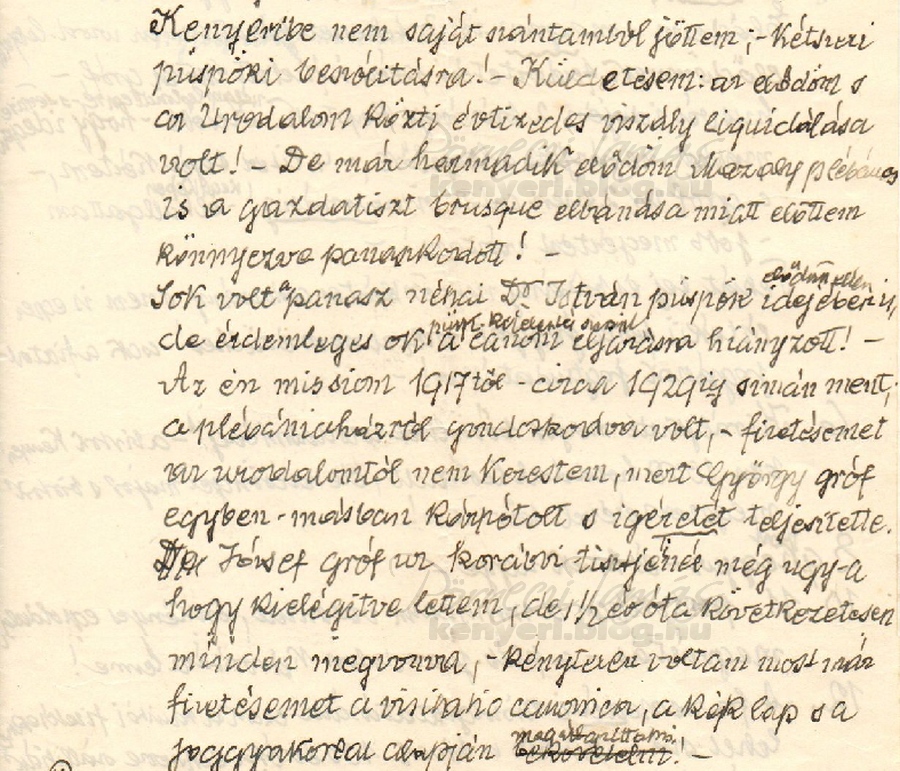 Kenyeribe nem saját szántamból jöttem; - Kétszeri
püspöki beszólitásra! - Küldetésem: az elődöm s
az Uradalom közti évtizedes viszály liquidálása
volt! - De már harmadik elődöm Mazaly plébános
is a gazdatiszt brusque elbánása miatt előttem
könnyezve panaszkodott! -
elődöm ellen
Sok volt a panasz néhai Dr István püspök idejében is,
püsp. kijelentés szerint
de érdemleges ok a canoni eljárásra hiányzott! -
Az én missiom 1917től - circa 1929ig simán ment;
a plébániaházról gondoskodva volt, - fizetésemet
az uradalomtól nem kerestem, mert György gróf
egyben-másban kárpótolt s igéretét teljesitette.
József gróf ur korábbi tisztjénél még ugy-a
hogy kielégitve lettem, de 1 1/2 év óta következetesen
minden megvonva, - kénytelen voltam most már
fizetésemet a visitatio canonica, a kék lap s a
joggyakorlat alapján megállapittatni! -
kenyeri.blog.hu
kenyeri.blog.hu